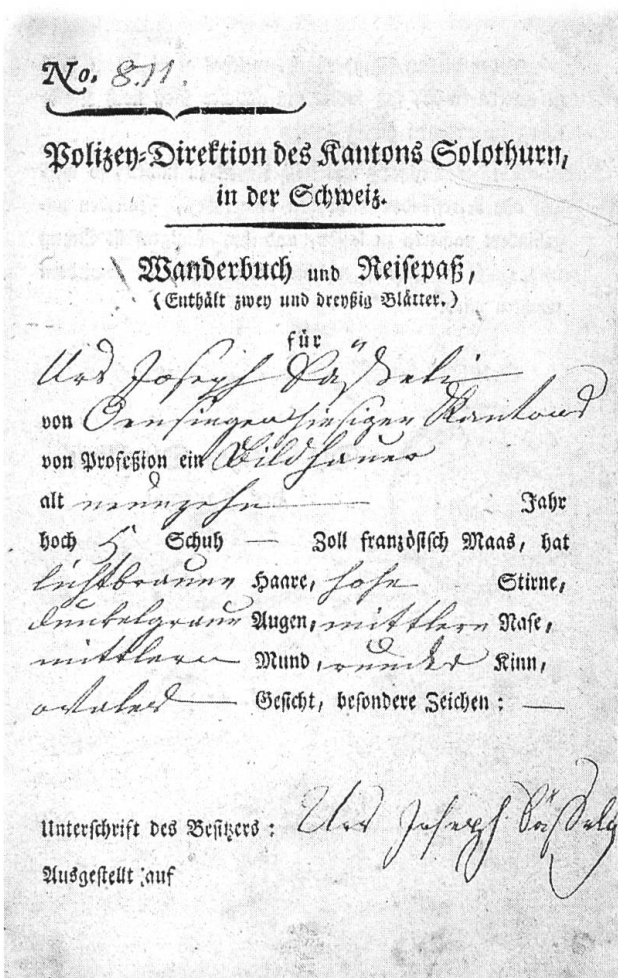 No. 811.
Polizey-Direktion des Kantons Solothurn,
in der Schweiz.
Wanderbuch und Reisepaß,
(Enthält zwey und dreyßig Blätter.)
für
Urs Joseph Säßeli
von Oensingen hiesigen Kantons
von Profeßion ein Bildhauer
alt neunzehn — Jahr
hoch 5 Schuh — Zoll französisch Maas, hat
lichtbraune Haare, hohe Stirne,
dunkelgraue Augen, mittlere Nase,
mittlern Mund, rundes Kinn,
ovales Gesicht, besondere Zeichen: —
Unterschrift des Besitzers: Urs Joseph Säßely
Ausgestellt auf